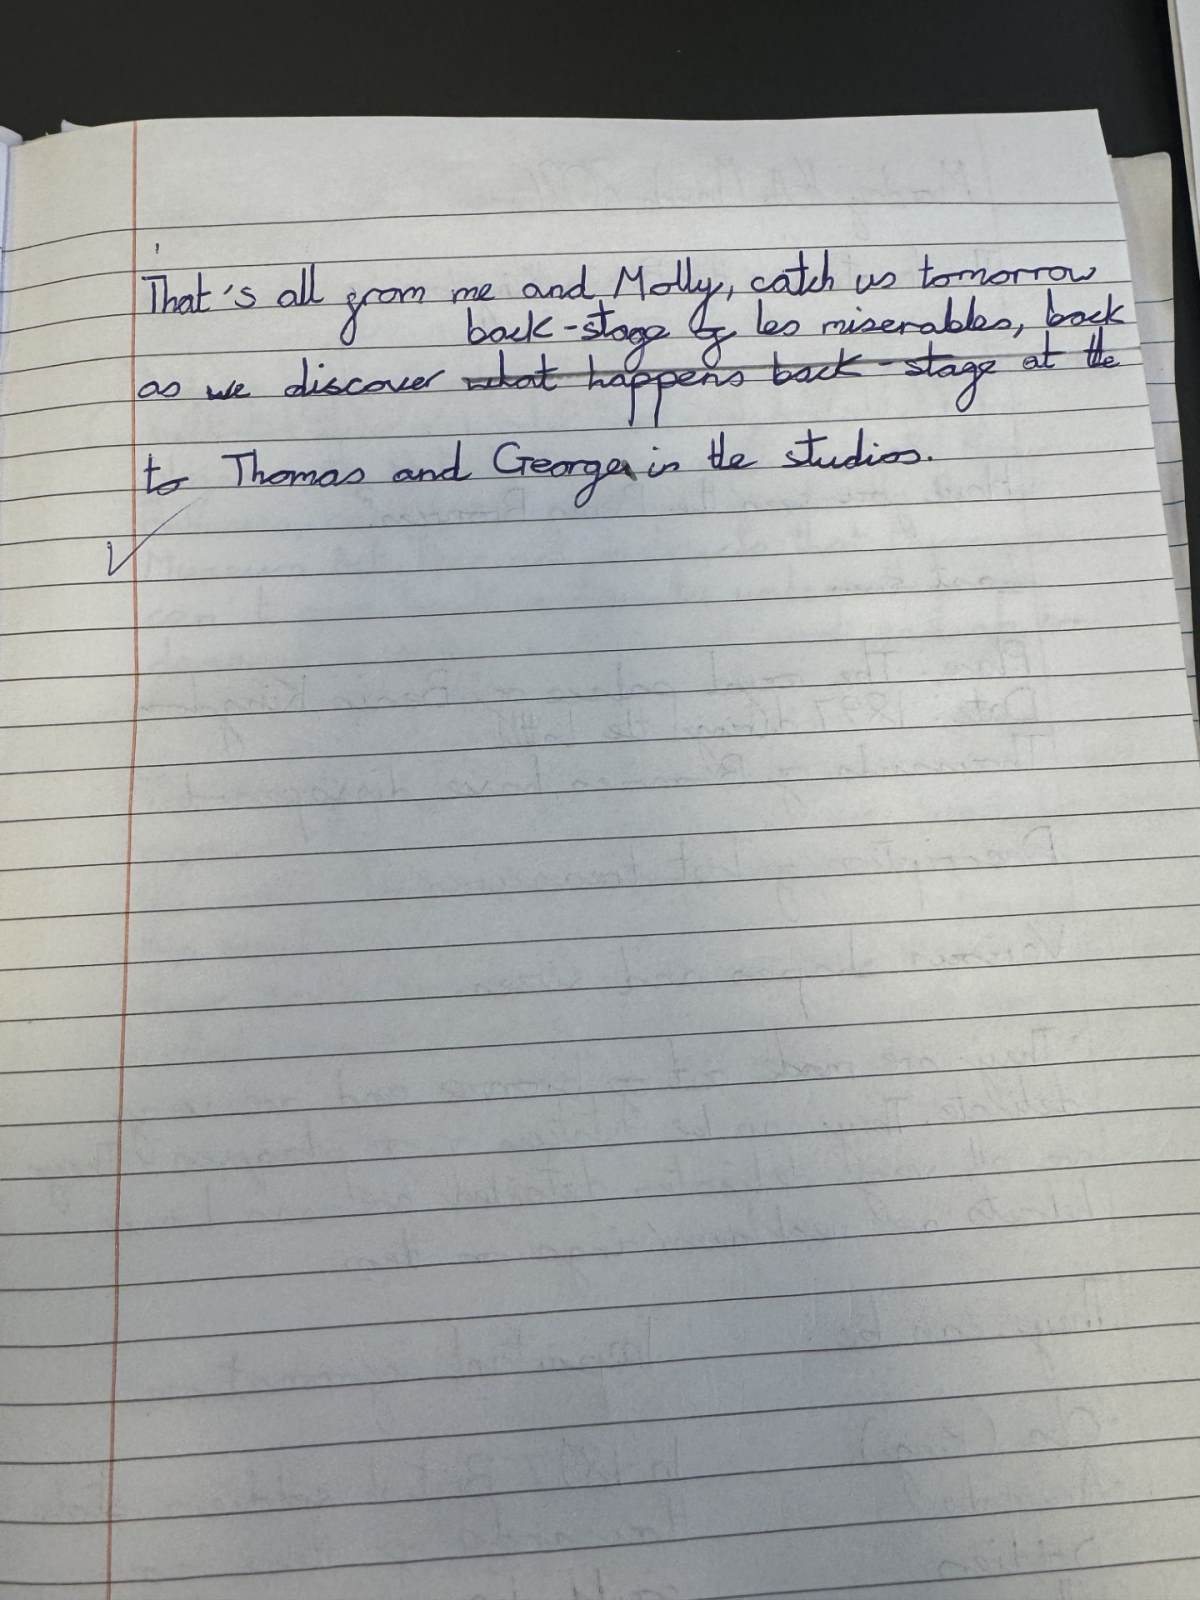 That's all from me and Molly, catch us tomorrow
back-stage of les miserables, back
as we discover what happens back-stage at the
to Thomas and George in the studios.